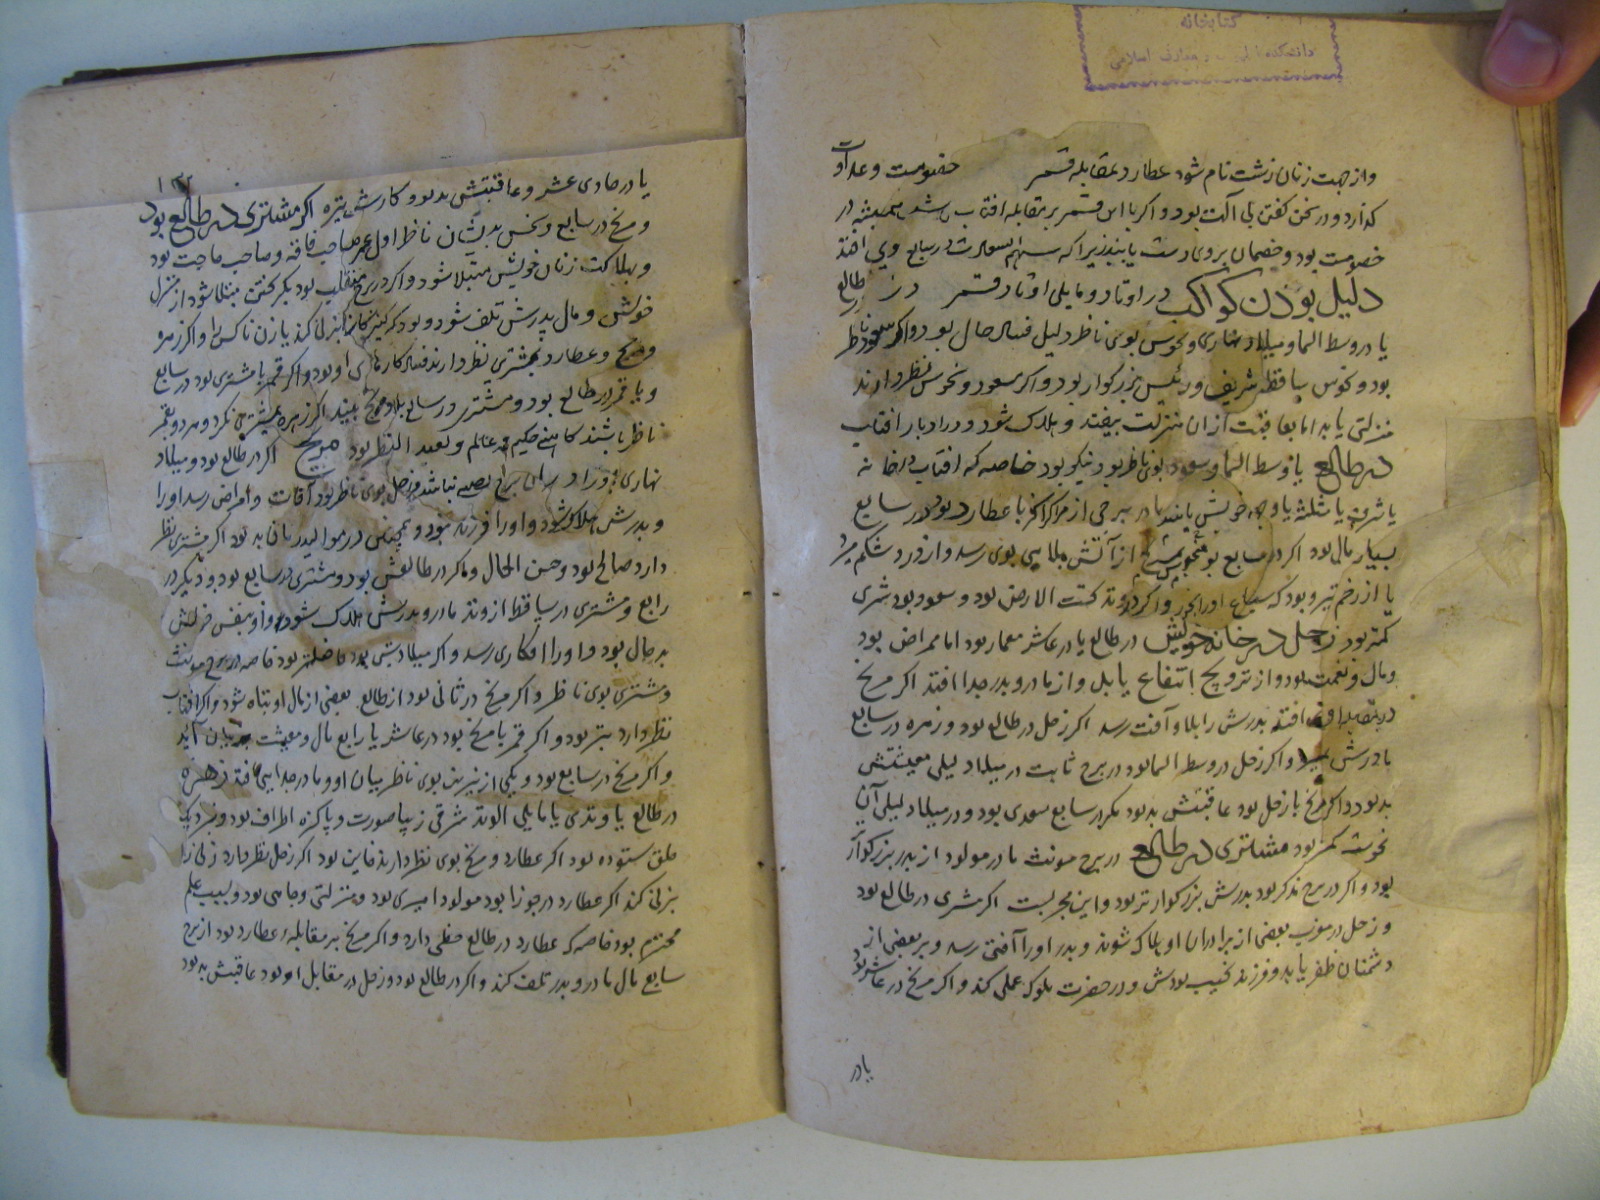 کتابخانه
دانشکده الهیات و معارف اسلامی
واز جهت زنان زشت نام شود عطارد بمقابله قمر خصومت و عداوت
که آرد و در سخن گفتن بود و اکر با این قمر بر مقابله افتاب باشد همیشه در
خصومت بود و خصمان بروی دست یابند زیرا که سهم السعادت در سابع وی افتد
دلیل بودن کواکب در اوتاد و مایلی اوتاد قمر در طالع
یا در وسط السما و میلاد نهاری و نحوس بوی ناظر دلیل فساد حال بود و اکر سعود ناظر
بود و نحوس ساقط شریف و رئیس بزرکوار بود و اکر سعود و نحوس نظر دارند
منزلتی یابد اما بعاقبت از ان منزلت بیفتد و هلاک شود و در ادبار افتاب
در طالع یا وسط السما و سعود بوی ناظر بود نیکو بود خاصه که افتاب در خانه
یا شرف یا مثلثه یا وجه خویش یا در برجی از مراکز اکر با عطارد بود در سابع
بسیار مال بود اکر در سابع بود مریخ از آتش بلایی بوی رسد و از درد شکم میرد
یا از زخم تیر و بود که سباع او را بخورد و اکر در وتد تحت الارض بود و سعود بود شری
کمتر بود زحل در خانه خویش در طالع یا در عاشر معمار بود اما ممراض بود
و مال و نعمت بود و از تزویج انتفاع یابد و از مادر و پدر جدا افتد اکر مریخ
در مقابله او افتد پدرش را بلا و آفت رسد اکر زحل در طالع بود و زهره در سابع
مادرش واکر زحل در وسط السما بود در برج ثابت در میلاد لیلی معیشتش
بد بود و اکر مریخ با زحل بود عاقبتش بد بود مکر در سابع سعدی بود و در میلاد لیلی آن
نحوست کمتر بود مشتری در طالع در برج مونث مادر مولود از پدر بزرکوارتر
بود و اکر در برج مذکر بود پدرش بزرکوارتر بود و این مجربست اکر مشتری در طالع بود
و زحل در مغرب بعضی از برادران او هلاک شوند و پدر او را آفتی رسد و بر بعضی از
دشمنان ظفر یابد و فرزند نجیب بودش و در حضرت ملوک عملی کند و اکر مریخ در عاشر بود
یا در
۱۳۲
یا در حادی عشر و عاقبتش بد بود و کارش تیره اکر مشتری در طالع بود
و مریخ در سابع و نحس بدیشان ناظر اول عمر صاحب فاقه و صاحب حاجت بود
و بهلاکت زنان خویش مبتلا شود و اکر در برج منقلب بود بکشتن مبتلا شود از منزل
خویش و مال پدرش تلف شود و بود که کنیزکان را بزنی کند یا زن ناکس را و اکر زهره
و مریخ و عطارد بمشتری نظر دارند فساد کارهای او بود و اکر قمر با مشتری بود در سابع
و یا قمر در طالع بود و مشتری در سابع بلا و رنج بیند اکر زهره بمشتری نکرد و هر دو بقمر
ناظر باشند کاهنی حکیم عالم و بعید النظر بود مریخ اکر در طالع بود و میلاد
نهاری و زحل بوی ناظر بود آفات و امراض رسد او را
و پدرش هلاک شود و او را فرزند نبود و همچنین در موالید ریاقا به بود اکر مشتری نظر
دارد صالح بود و حسن الحال و اکر در طالعش بود و مشتری در سابع بود و دیکر در
رابع و مشتری در ساقط از وتد مادر و پدرش هلاک شود و او بنفس خویش
بد حال بود و او را افکاری رسد و اکر میلاد شبی بود فاضلتر بود خاصه در برج مونث
و مشتری بوی ناظر و اکر مریخ در ثانی بود از طالع بعضی از مال او تباه شود و اکر افتاب
نظر دارد بتر بود و اکر قمر با مریخ بود در عاشر یا رابع مال و معیشت بزیان آید
و اکر مریخ در سابع بود و یکی از نیرین بوی ناظر میان او و مادر جدایی افتد زهره
در طالع یا وتدی یا مایلی الوتد شرقی زیبا صورت و پاکیزه اطراف بود و نزدیک
خلق ستوده بود اکر عطارد و مریخ بوی نظر دارند خاین بود اکر زحل نظر دارد زنی را
بزنی کند اکر عطارد در جوزا بود مولود امیری بود و منزلتی و جاهی بود و بسبب علم
محترم بود خاصه که عطارد در طالع حظی دارد و اکر مریخ بر مقابله عطارد بود از برج
سابع مال مادر و پدر تلف کند و اکر در طالع بود و زحل در مقابل او بود عاقبتش بد بود